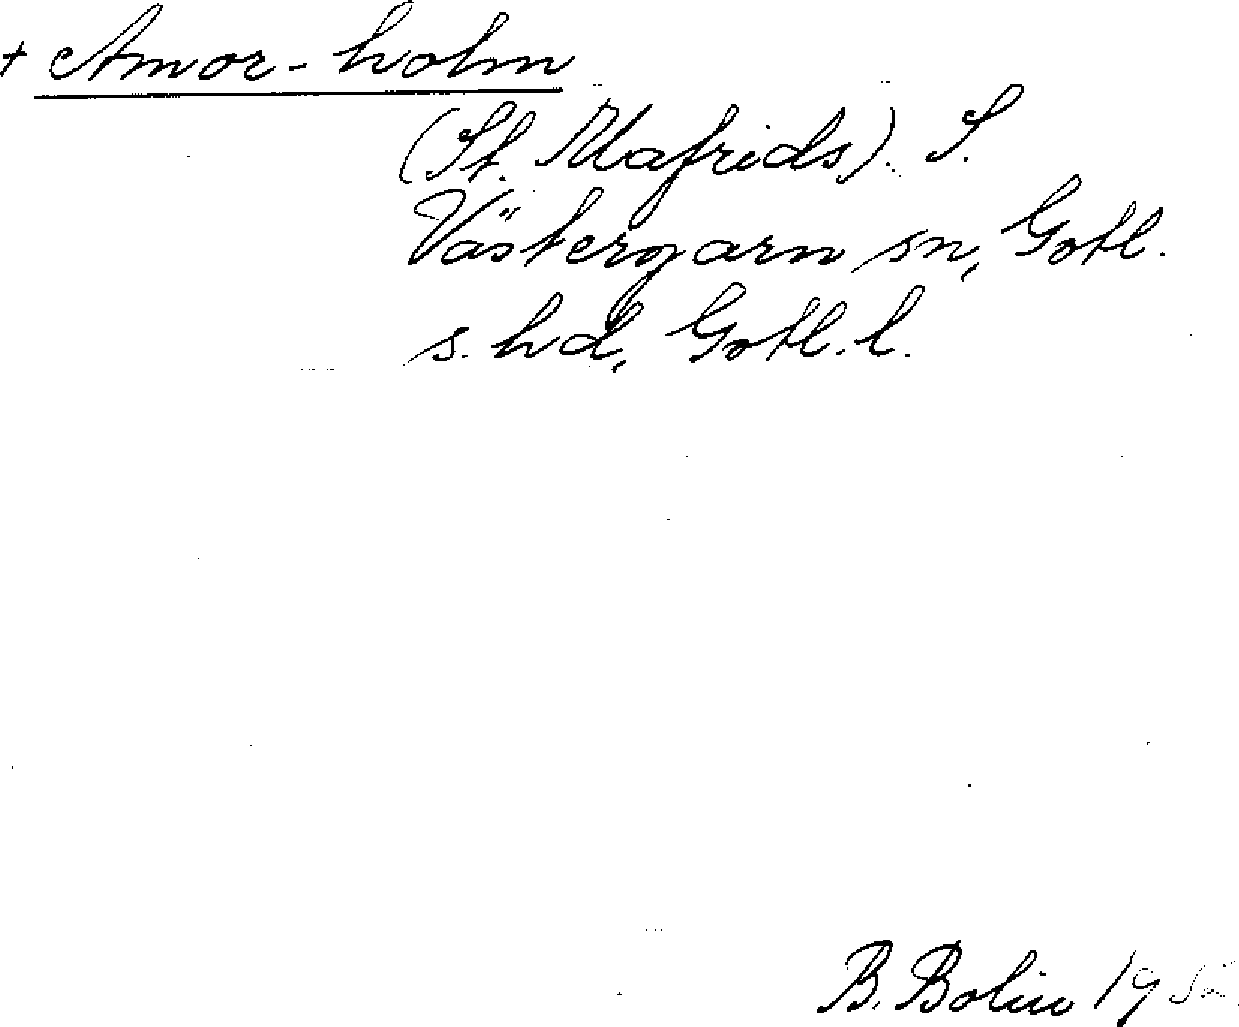 + Amor-holm
(St. Mafrids). S.
Västergarn sn, Gotl.
s. hd, Gotl. l.
B. Bolin